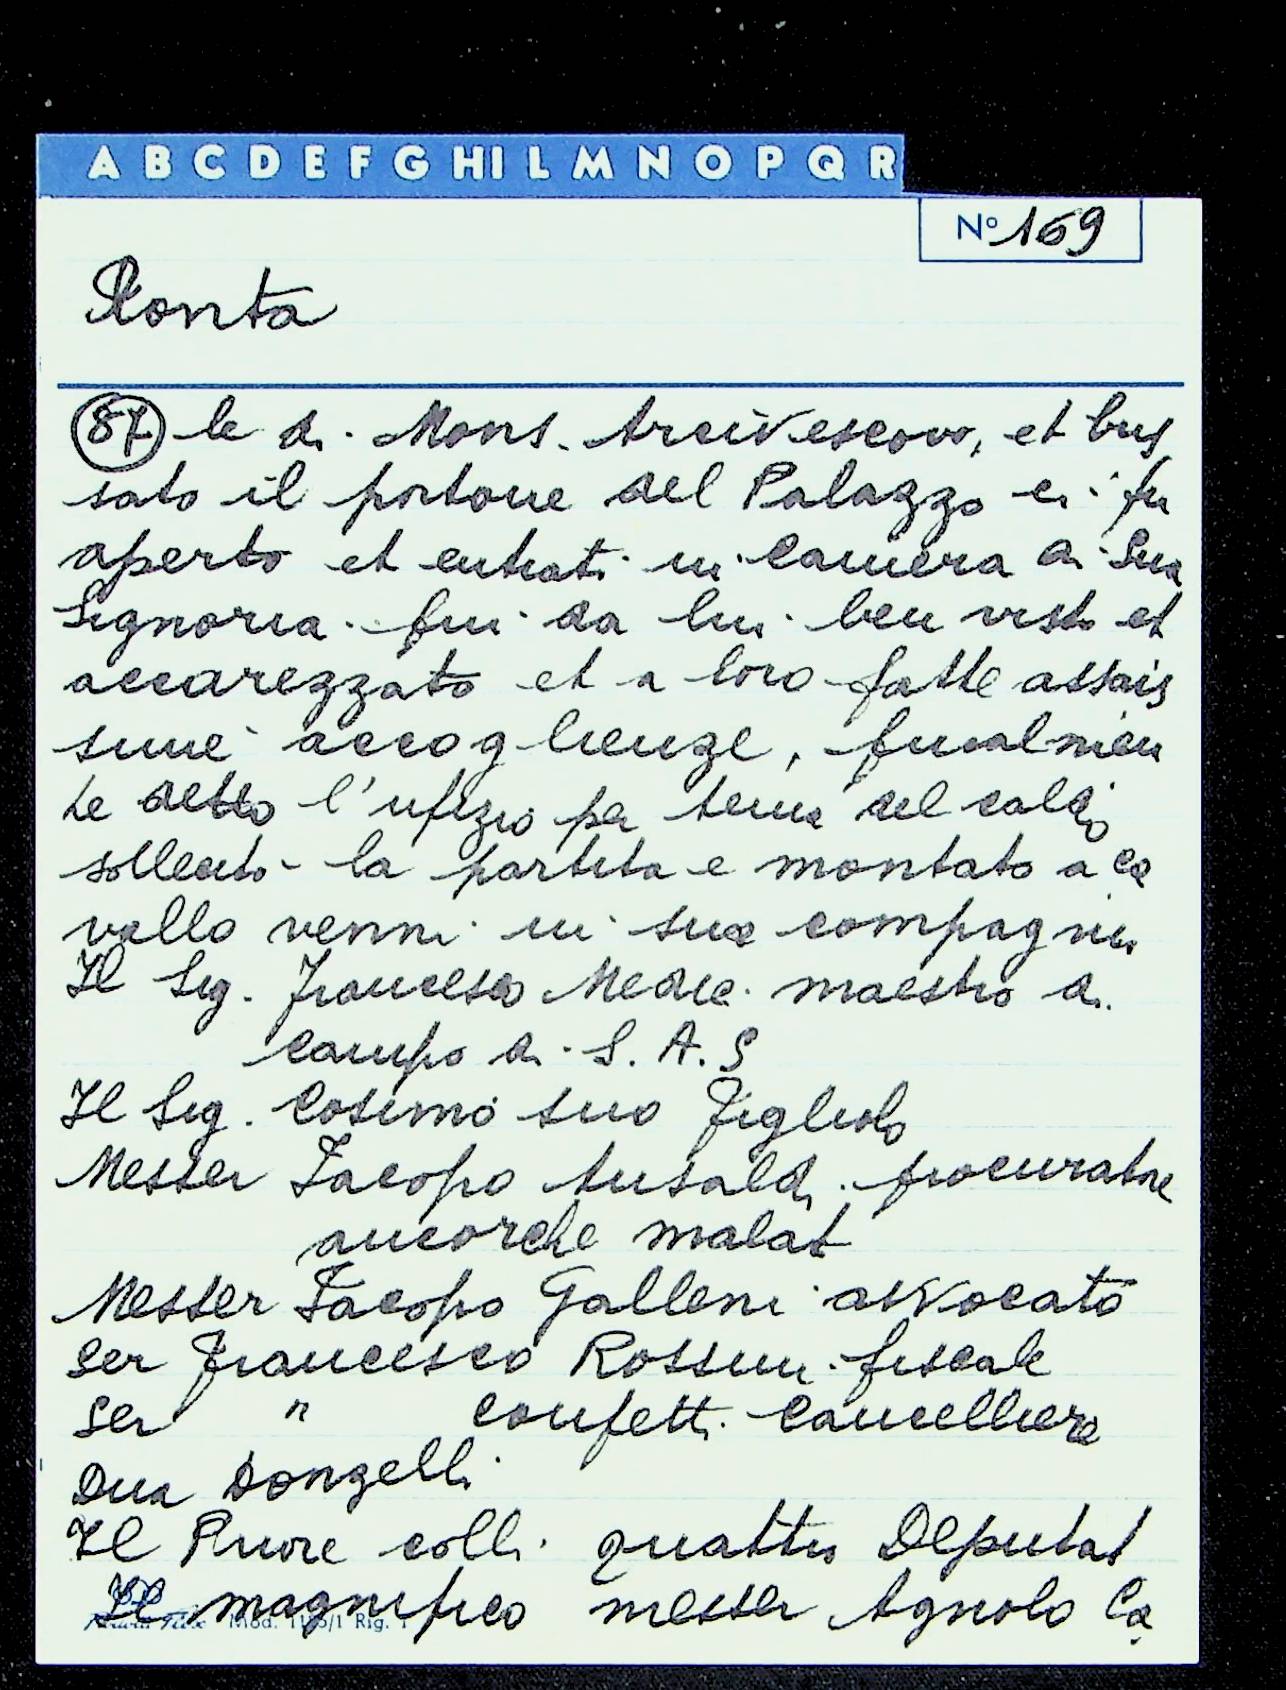 A B C D E F G HI L M N O P Q R
Nº 169
Ronta
87 le di Mons. Arcivescovo, et bus
sato il portone del Palazzo ci fu
aperto et entrati in camera di Sua
Signoria fui da lui ben visto et
accarezzato et a loro fatte assais
sime accoglienze, finalmen
te detto l'ufizio per tema del caldo
sollecito la partita e montato a ca
vallo venni in sua compagnia
Il Sig. Francesco Medici maestro di
campo di S. A. S
Il Sig. Cosimo suo Figliolo
Messer Iacopo Ansaldi procuratore
ancorche malat
Messer Iacopo Galleni avvocato
Ser Francesco Rossini fiscale
Ser " Confetti Cancelliere
Dua Donzelli
Il Priore colli quattro Deputat
Il magnifico messer Agnolo Ca
Mod. Rig.